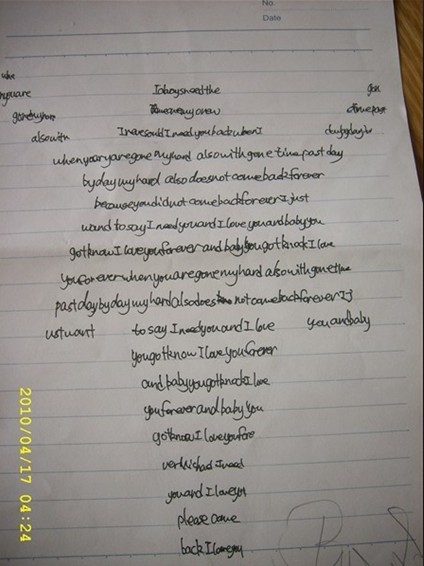 No.
Date
whe
nyouare Ioboysneedthe gon
gonemyhan
alsowith InevesouldIneedyoubackwhenI daybydayin
whenyouryaregonemyhard alsowith gone time past day
bydaymyhard also doesnot comeback forever
becauseyoudidnot comebackforever I just
wand to say I need you and I love you and baby you
gotknow I love you forever and baby yougotknock I love
youforever when you are gone myhard also with gone time
past day by day my hard also does not comebackforever I j
ustwant to say I need you and I love you and baby
yougotknow I love you forever
and baby you got knock I love
you forever and baby you
gotknow I love you fore
ver I need
you and I love you
please come
back I love you
2010/04/17 04:24